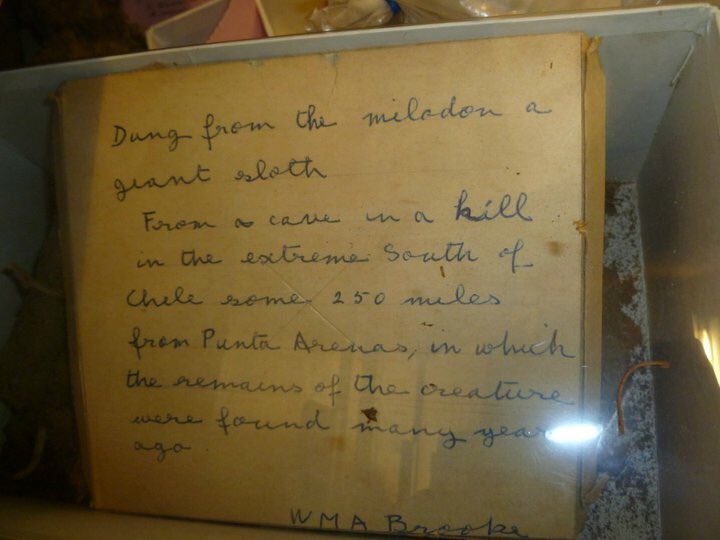 Dung from the milodon a
giant sloth
From a cave in a hill
in the extreme South of
Chile some 250 miles
from Punta Arenas, in which
the remains of the creature
were found many years
ago
WMA Brooke